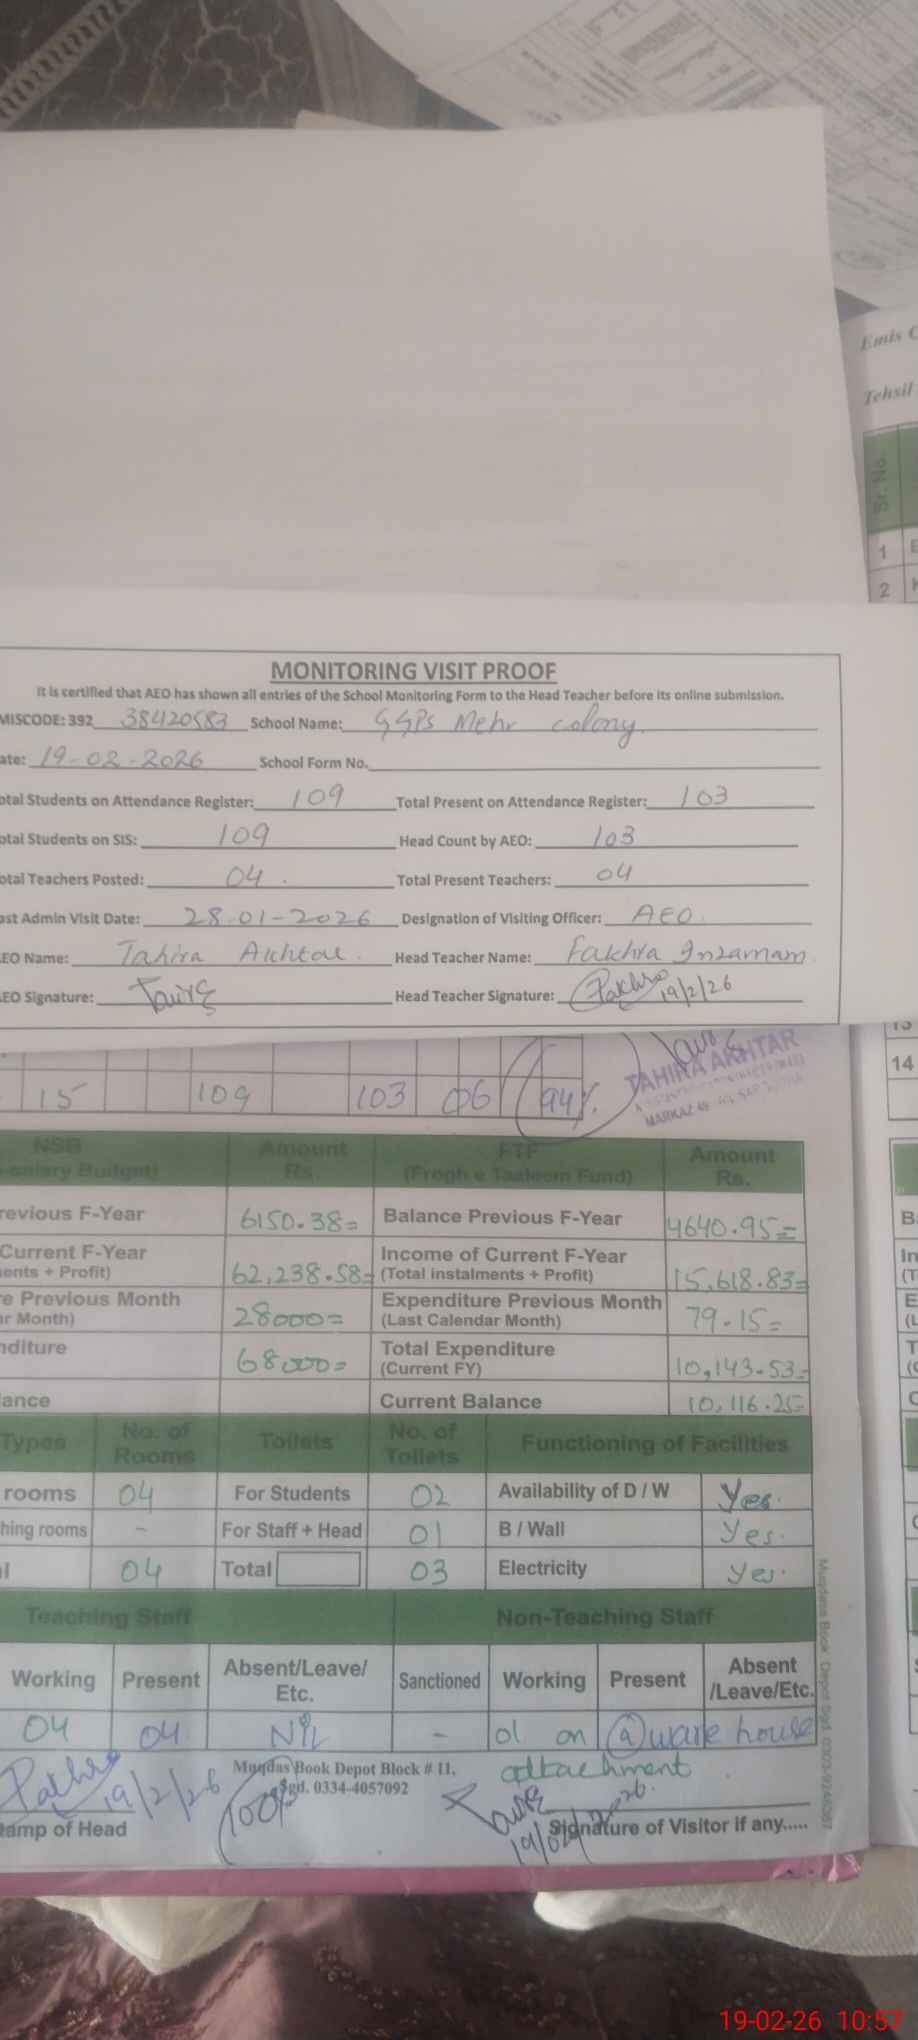 Emis C
Tehsil
Sr. No.
1 E
2
MONITORING VISIT PROOF
It is certified that AEO has shown all entries of the School Monitoring Form to the Head Teacher before its online submission.
MISCODE: 392 38420583 School Name: GGPS Mehr colony
ate: 19-02-2026 School Form No.
otal Students on Attendance Register: 109 Total Present on Attendance Register: 103
otal Students on SIS: 109 Head Count by AEO: 103
otal Teachers Posted: 04 Total Present Teachers: 04
ast Admin Visit Date: 28-01-2026 Designation of Visiting Officer: AEO.
EO Name: Tahira Akhtar. Head Teacher Name: Fakhra Inzamam
EO Signature: Head Teacher Signature: Fakhra 19/2/26
TAHIRA AKHTAR
MARKAZ
15 109 103 06 94%
13
14
NSB Amount Rs. FTF (Frogh e Taaleem Fund) Amount Rs.
-salary Budget)
revious F-Year 6150.38= Balance Previous F-Year 4640.95=
Current F-Year 62,238.58= Income of Current F-Year 15,618.83=
ents + Profit) (Total instalments + Profit)
re Previous Month 28000= Expenditure Previous Month 79.15=
ar Month) (Last Calendar Month)
nditure 68000= Total Expenditure 10,143.53=
(Current FY)
ance Current Balance 10,116.25=
Types No. of Rooms Toilets No. of Toilets Functioning of Facilities
rooms 04 For Students 02 Availability of D / W Yes.
hing rooms - For Staff + Head 01 B / Wall Yes.
l 04 Total 03 Electricity Yes.
Teaching Staff Non-Teaching Staff
Working Present Absent/Leave/ Etc. Sanctioned Working Present Absent /Leave/Etc.
04 04 Nil - 01 on @ ware house
attachment
Fakhra 19/2/26 Muqdas Book Depot Block # 11,
Sgd. 0334-4057092
100%
tamp of Head Signature of Visitor if any.....
19-02-26 10:57